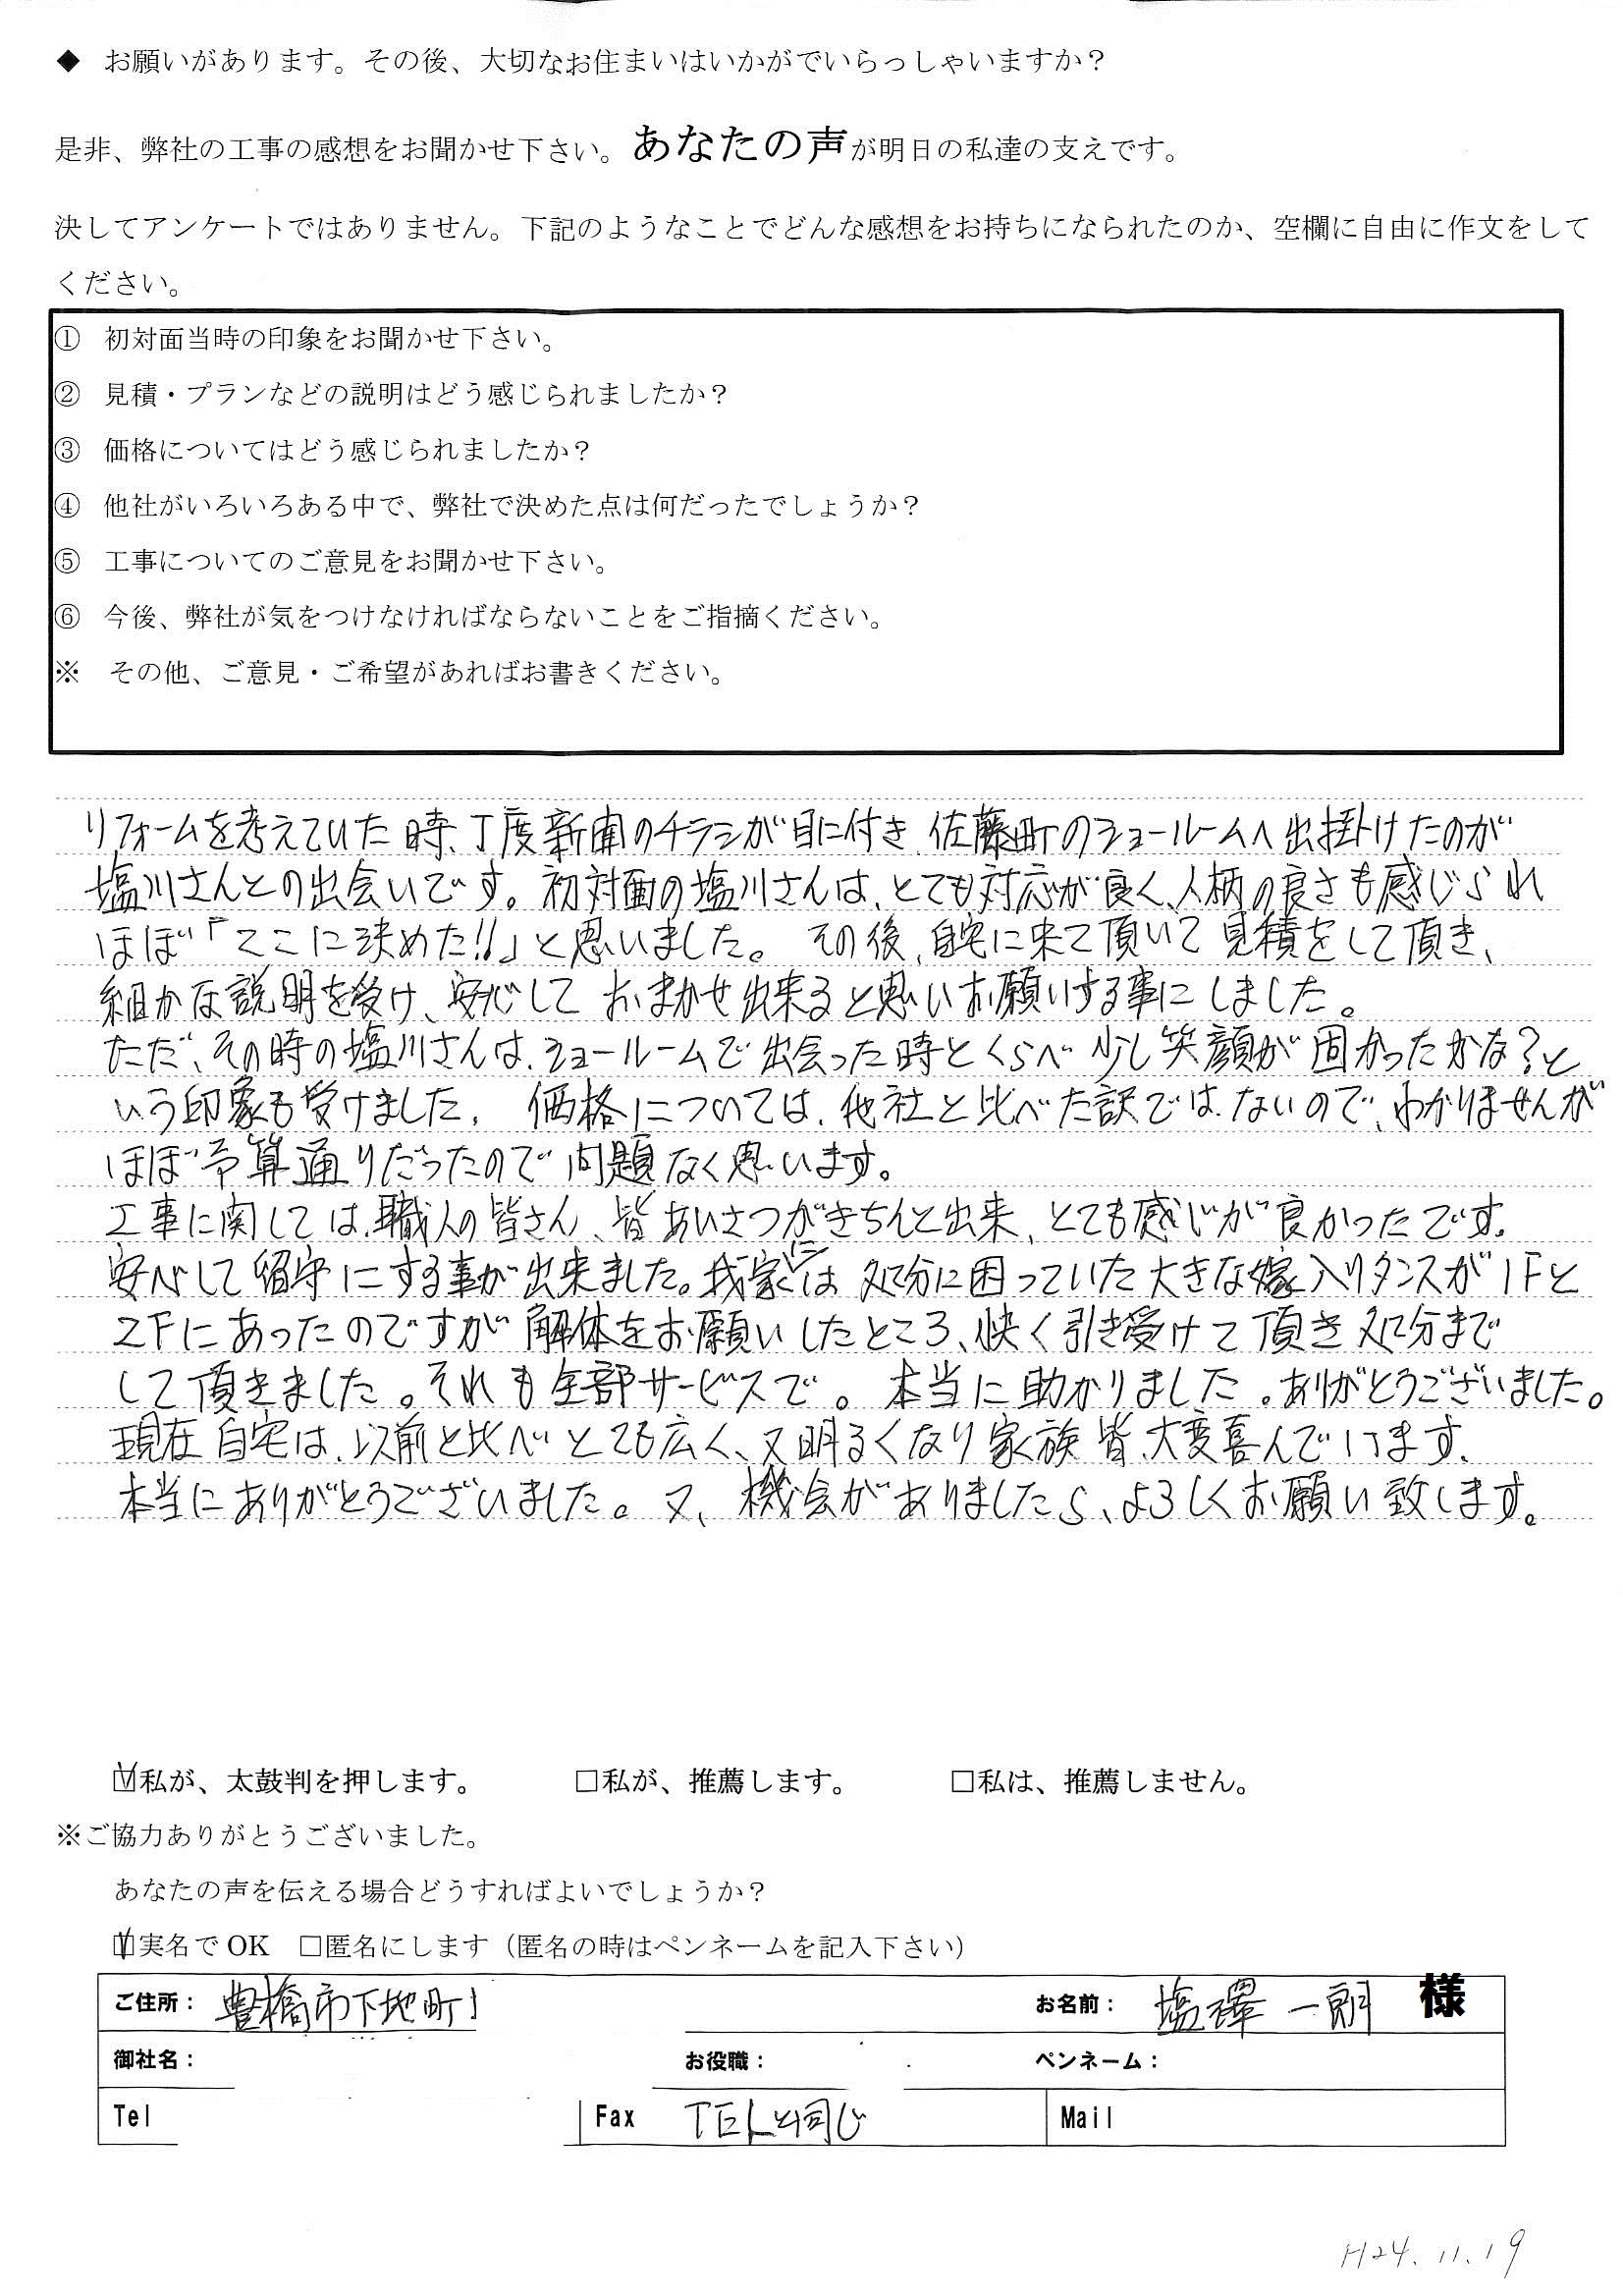 ◆ お願いがあります。その後、大切なお住まいはいかがでいらっしゃいますか？
是非、弊社の工事の感想をお聞かせ下さい。あなたの声が明日の私達の支えです。
決してアンケートではありません。下記のようなことでどんな感想をお持ちになられたのか、空欄に自由に作文をして
ください。
① 初対面当時の印象をお聞かせ下さい。
② 見積・プランなどの説明はどう感じられましたか？
③ 価格についてはどう感じられましたか？
④ 他社がいろいろある中で、弊社で決めた点は何だったでしょうか？
⑤ 工事についてのご意見をお聞かせ下さい。
⑥ 今後、弊社が気をつけなければならないことをご指摘ください。
※ その他、ご意見・ご希望があればお書きください。
リフォームを考えていた時、丁度新聞のチラシが目に付き、佐藤町のショールームへ出掛けたのが
塩川さんとの出会いです。初対面の塩川さんは、とても対応が良く、人柄の良さも感じられ
ほぼ「ここに決めた!!」と思いました。 その後、自宅に来て頂いて見積をして頂き、
細かな説明を受け、安心しておまかせ出来ると思いお願いする事にしました。
ただ、その時の塩川さんは、ショールームで出会った時とくらべ少し笑顔が固かったかな？と
いう印象も受けました。 価格については、他社と比べた訳ではないので、わかりませんが
ほぼ予算通りだったので問題なく思います。
工事に関しては、職人の皆さん、皆あいさつがきちんと出来、とても感じが良かったです。
安心して留守にする事が出来ました。我家には処分に困っていた大きな嫁入りタンスが1Fと
2Fにあったのですが解体をお願いしたところ、快く引き受けて頂き処分まで
して頂きました。それも全部サービスで。本当に助かりました。ありがとうございました。
現在自宅は、以前と比べとても広く、又明るくなり家族皆、大変喜んでいます。
本当にありがとうございました。又、機会がありましたら、よろしくお願い致します。
☑私が、太鼓判を押します。 □私が、推薦します。 □私は、推薦しません。
※ご協力ありがとうございました。
あなたの声を伝える場合どうすればよいでしょうか？
☑実名でOK □匿名にします（匿名の時はペンネームを記入下さい）
ご住所： 豊橋市下地町 お名前： 塩澤 一朗 様
御社名： お役職： ペンネーム：
Tel Fax TELと同じ Mail
H24.11.19